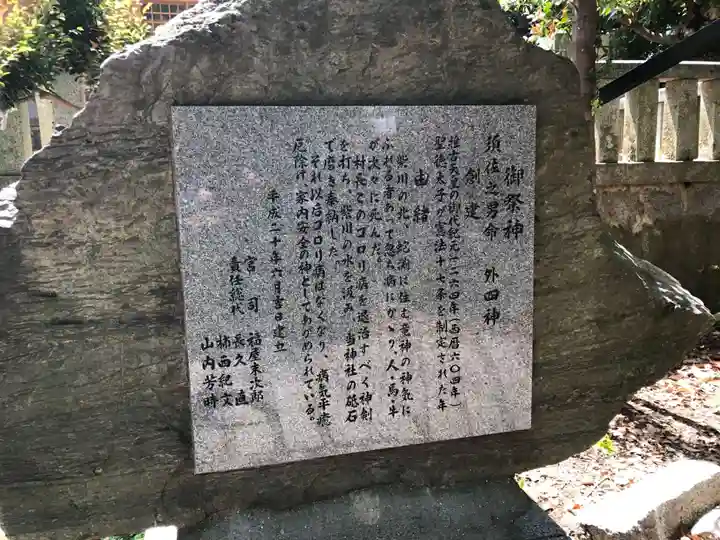 御祭神
須佐之男命　外四神
創建
推古天皇の御代紀元一二六四年(西暦六〇四年)
聖徳太子が憲法十七条を制定された年
由緒
紫川の北、蛇渕に住む竜神の神気に
ふれる者あって忽ち病にかゝり、人・馬・牛
が次々に死んだ。
村長このゴロリ病を退治すべく神剣
を打ち、紫川の水を汲み、当神社の砥石
で磨き奉納した。
それ以后ゴロリ病はなくなり、病気平癒
厄除け、家内安全の神としてあがめられている。
平成二十年六月吉日建立
宮司　稲屋末次郎
責任総代　長久　直
柿西紀文
山内芳時